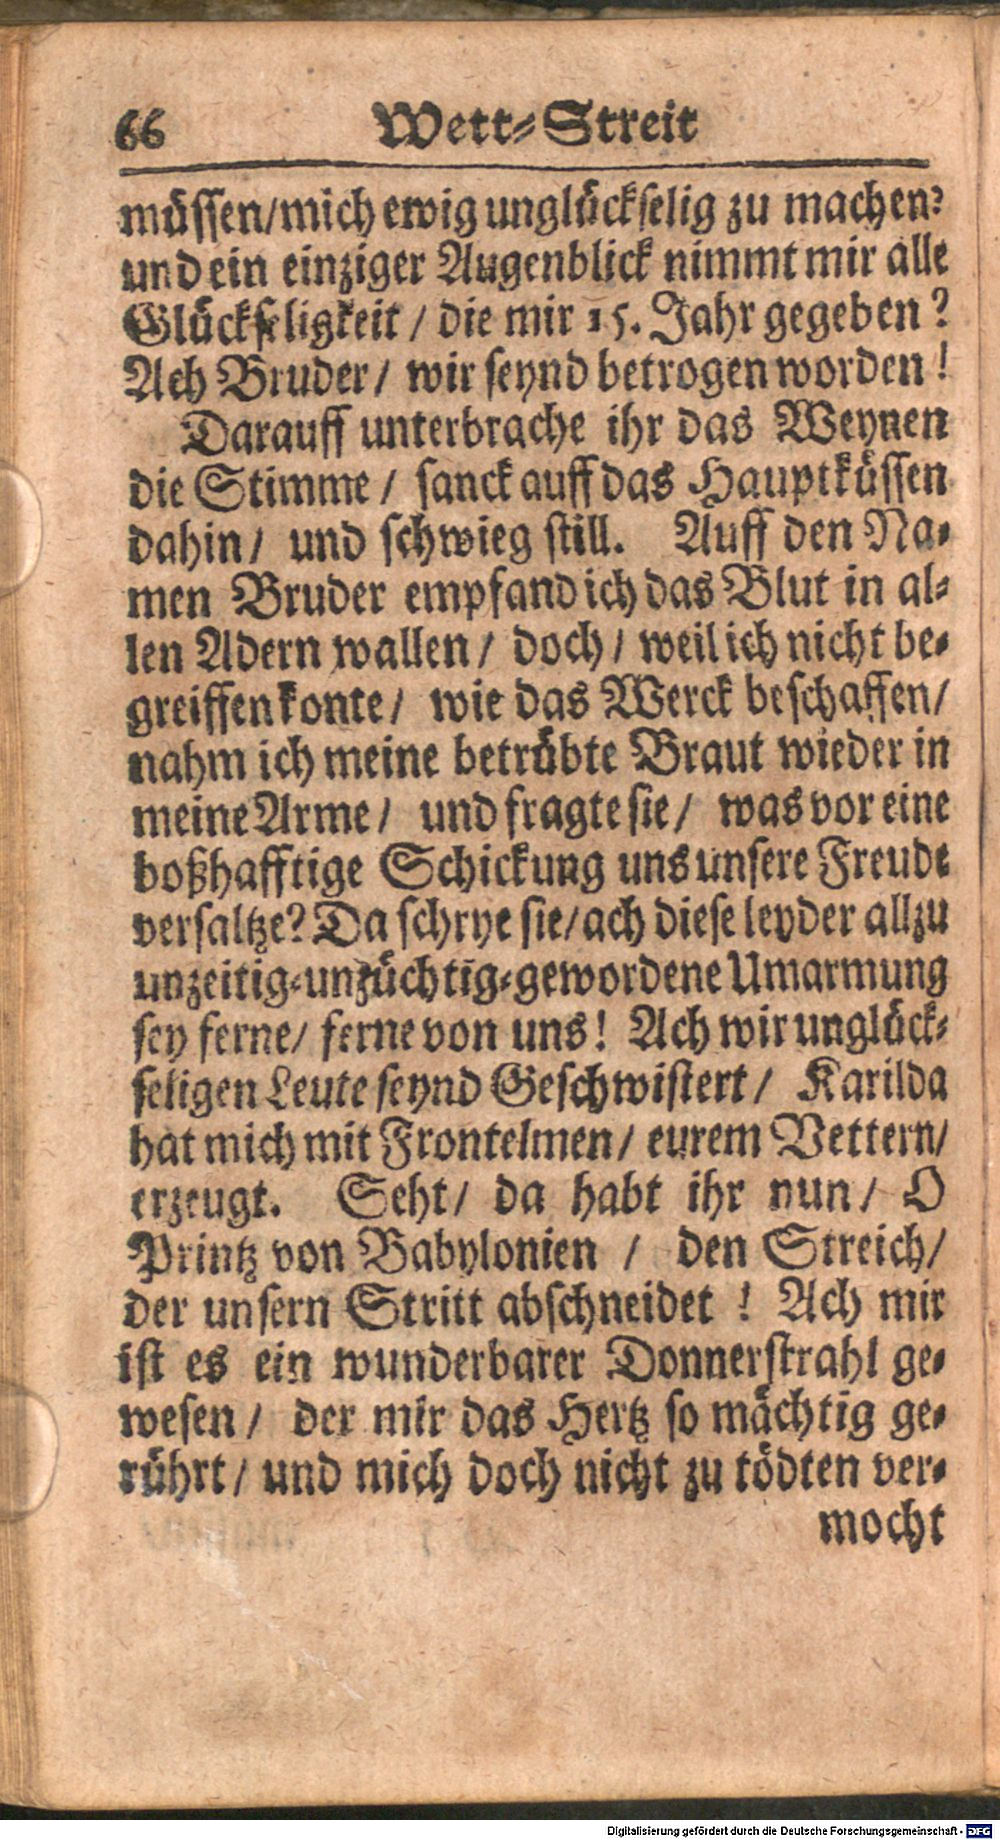 66 Wett-Streit
müssen/mich ewig unglückselig zu machen?
und ein einziger Augenblick nimmt mir alle
Glückseligkeit / die mir 15. Jahr gegeben?
Ach Bruder/ wir seynd betrogen worden!
Darauff unterbrache ihr das Weynen
die Stimme / sanck auff das Hauptküssen
dahin/ und schwieg still. Auff den Na-
men Bruder empfand ich das Blut in al-
len Adern wallen / doch / weil ich nicht be-
greiffen konte/ wie das Werck beschaffen/
nahm ich meine betrübte Braut wieder in
meine Arme / und fragte sie / was vor eine
boßhafftige Schickung uns unsere Freude
versaltze? Da schrye sie/ach diese leyder allzu
unzeitig-unzüchtig-gewordene Umarmung
sey ferne/ ferne von uns! Ach wir unglück-
seligen Leute seynd Geschwistert / Karilda
hat mich mit Frontelmen / eurem Vettern/
erzeugt. Seht/ da habt ihr nun / O
Printz von Babylonien / den Streich/
der unsern Stritt abschneidet ! Ach mir
ist es ein wunderbarer Donnerstrahl ge-
wesen / der mir das Hertz so mächtig ge-
rührt / und mich doch nicht zu tödten ver-
mocht
Digitalisierung gefördert durch die Deutsche Forschungsgemeinschaft - DFG